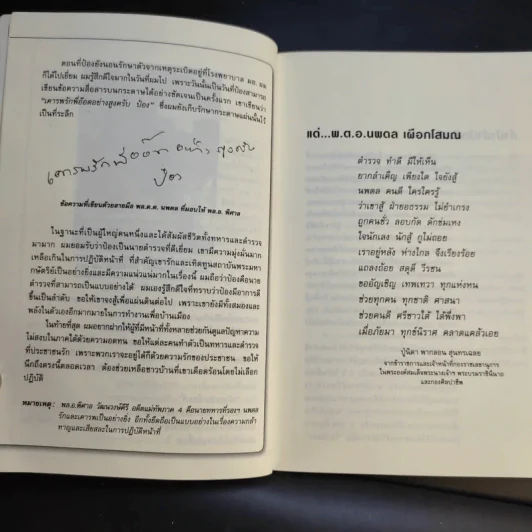 ตอนที่ป้องยังนอนรักษาตัวจากเหตุระเบิดอยู่ที่โรงพยาบาล ผอ. ผม
ก็ได้ไปเยี่ยม ผมรู้สึกดีใจมากในวันที่ผมไป เพราะวันนั้นเป็นวันที่ป้องสามารถ
เขียนข้อความสื่อสารบนกระดาษได้อย่างชัดเจนเป็นครั้งแรก เขาเขียนว่า
"เคารพรักพี่อ๊อดอย่างสูงครับ ป้อง" ซึ่งผมยังเก็บรักษากระดาษแผ่นนั้นไว้
เป็นที่ระลึก
เคารพรักพี่อ๊อด อย่างสูงครับ
ป้อง
ข้อความที่เขียนด้วยลายมือ พล.ต.ต. นพดล ที่มอบให้ พล.อ. พิศาล
ในฐานะที่เป็นผู้ใหญ่คนหนึ่งและได้สัมผัสชีวิตทั้งทหารและตำรวจ
มามาก ผมยอมรับว่าป้องเป็นนายตำรวจที่ดีเยี่ยม เขามีความมุ่งมั่นมาก
เหลือเกินในการปฏิบัติหน้าที่ ที่สำคัญเขารักและเทิดทูนสถาบันพระมหา
กษัตริย์เป็นอย่างยิ่งและมีความแน่วแน่มากในเรื่องนี้ ผมถือว่าป้องคือนาย
ตำรวจที่สามารถเป็นแบบอย่างได้ ผมเองรู้สึกดีใจที่ทราบว่าป้องมีอาการดี
ขึ้นเป็นลำดับ ขอให้เขาจงสู้เพื่อแผ่นดินต่อไป เพราะเขายังมีทั้งสมองและ
พลังในตัวเองอีกมากมายในการทำงานเพื่อบ้านเมือง
ในท้ายที่สุด ผมอยากฝากให้ผู้ที่มีหน้าที่ทั้งหลายช่วยกันดูแลปัญหาความ
ไม่สงบในภาคใต้ด้วยความอดทน ขอให้แต่ละคนทำตัวเป็นทหารและตำรวจ
ที่ประชาชนรัก เพราะพวกเราจะอยู่ได้ก็ด้วยความรักของประชาชน ขอให้
นึกถึงตรงนี้ตลอดเวลา ต้องช่วยเหลือชาวบ้านที่เขาเดือดร้อนโดยไม่เลือก
ปฏิบัติ
หมายเหตุ: พล.อ.พิศาล วัฒนวงษ์คีรี อดีตแม่ทัพภาค 4 คือนายทหารที่รองฯ นพดล
รักและเคารพเป็นอย่างยิ่ง อีกทั้งยึดถือเป็นแบบอย่างในเรื่องความกล้า
หาญและเสียสละในการปฏิบัติหน้าที่
แด่...พ.ต.อ.นพดล เผือกโสมณ
ตำรวจ ทำดี มีให้เห็น
ยากลำเค็ญ เพียงใด ใจยังสู้
นพดล คนดี ใครใครรู้
ว่าเขาสู้ ฝ่ายอธรรม ไม่ยำเกรง
ถูกคนชั่ว ลอบกัด ดักข่มเหง
ใจนักเลง นักสู้ กูไม่ถอย
เราอยู่หลัง ห่างไกล จึงเรียงร้อย
แถลงถ้อย สดุดี วีรชน
ขออัญเชิญ เทพเทวา ทุกแห่งหน
ช่วยทุกคน ทุกชาติ ศาสนา
ช่วยคนดี ศรีชาวใต้ ได้พึ่งพา
เมื่อภัยมา ทุกข์นิราศ คลาดแคล้วเอย
ปู่นิดา พากลอน สุนทรเฉลย
จากข้าราชการและเจ้าหน้าที่กองราชเลขานุการ
ในพระองค์สมเด็จพระนางเจ้าฯ พระบรมราชินีนาถ
และกองศิลปาชีพ